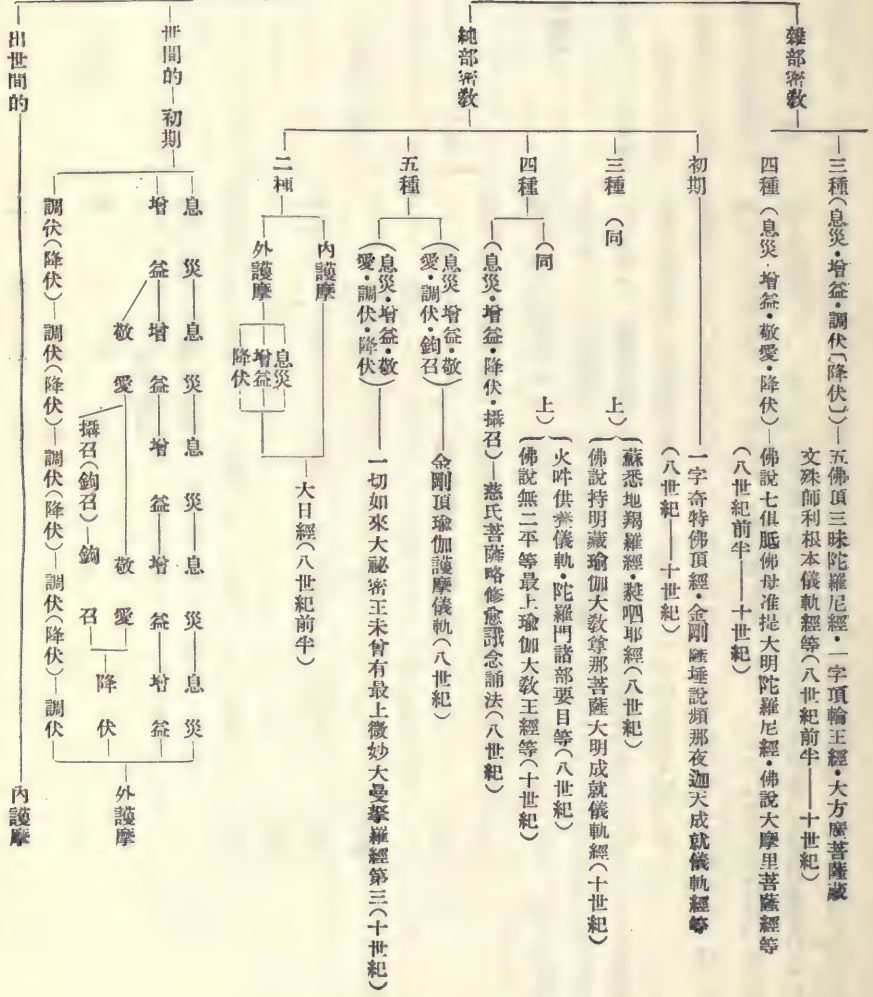 雜部密教
三種(息災・增益・調伏〔降伏〕)—五佛頂三昧陀羅尼經・一字頂輪王經・大方廣菩薩藏
文殊師利根本儀軌經等(八世紀前半——十世紀)
四種(息災・增益・敬愛・降伏)—佛說七俱胝佛母准提大明陀羅尼經・佛說大摩里菩薩經等
(八世紀前半——十世紀)
純部密教
初期——一字奇特佛頂經・金剛薩埵說頻那夜迦天成就儀軌經等
(八世紀——十世紀)
三種(同 上)
蘇悉地羯羅經・蕤呬耶經(八世紀)
佛說持明藏瑜伽大敎尊那菩薩大明成就儀軌經(十世紀)
四種
(同 上)
火吽供養儀軌・陀羅門諸部要目等(八世紀)
佛說無二平等最上瑜伽大敎王經等(十世紀)
(息災・增益・降伏・攝召)—慈氏菩薩略修愈誐念誦法(八世紀)
五種
(息災・增益・敬
愛・調伏・鉤召)
金剛頂瑜伽護摩儀軌(八世紀)
(息災・增益・敬
愛・調伏・降伏)
一切如來大祕密王未曾有最上微妙大曼拏羅經第三(十世紀)
二種
內護摩
外護摩
息災
增益
降伏
大日經(八世紀前半)
世間的—初期
息災—息災—息災—息災—息災
增益—增益—增益—增益—增益
敬愛
敬愛
降伏
攝召(鉤召)—鉤召
調伏(降伏)—調伏(降伏)—調伏(降伏)—調伏(降伏)—調伏
外護摩
出世間的
內護摩